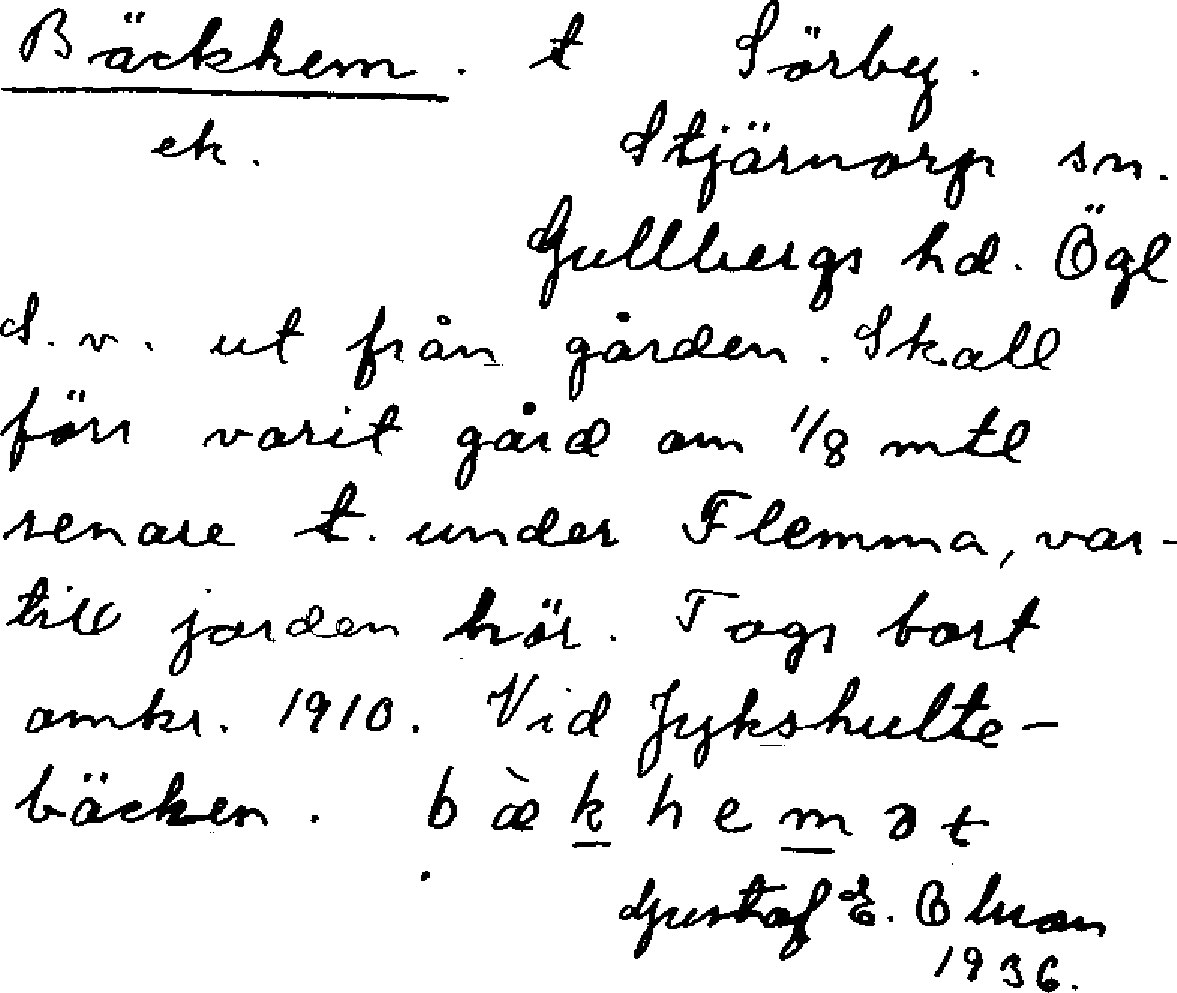 Bäckhem. t Sörby.
ek. Stjärnorp sn.
Gullbergs hd. Ögl
S. v. ut från gården. Skall
förr varit gård om 1/8 mtl
senare t. under Flemma, var-
till jorden hör. Togs bort
omkr. 1910. Vid Jykshulte-
bäcken. bàekhemət
Gustaf E.
1936.